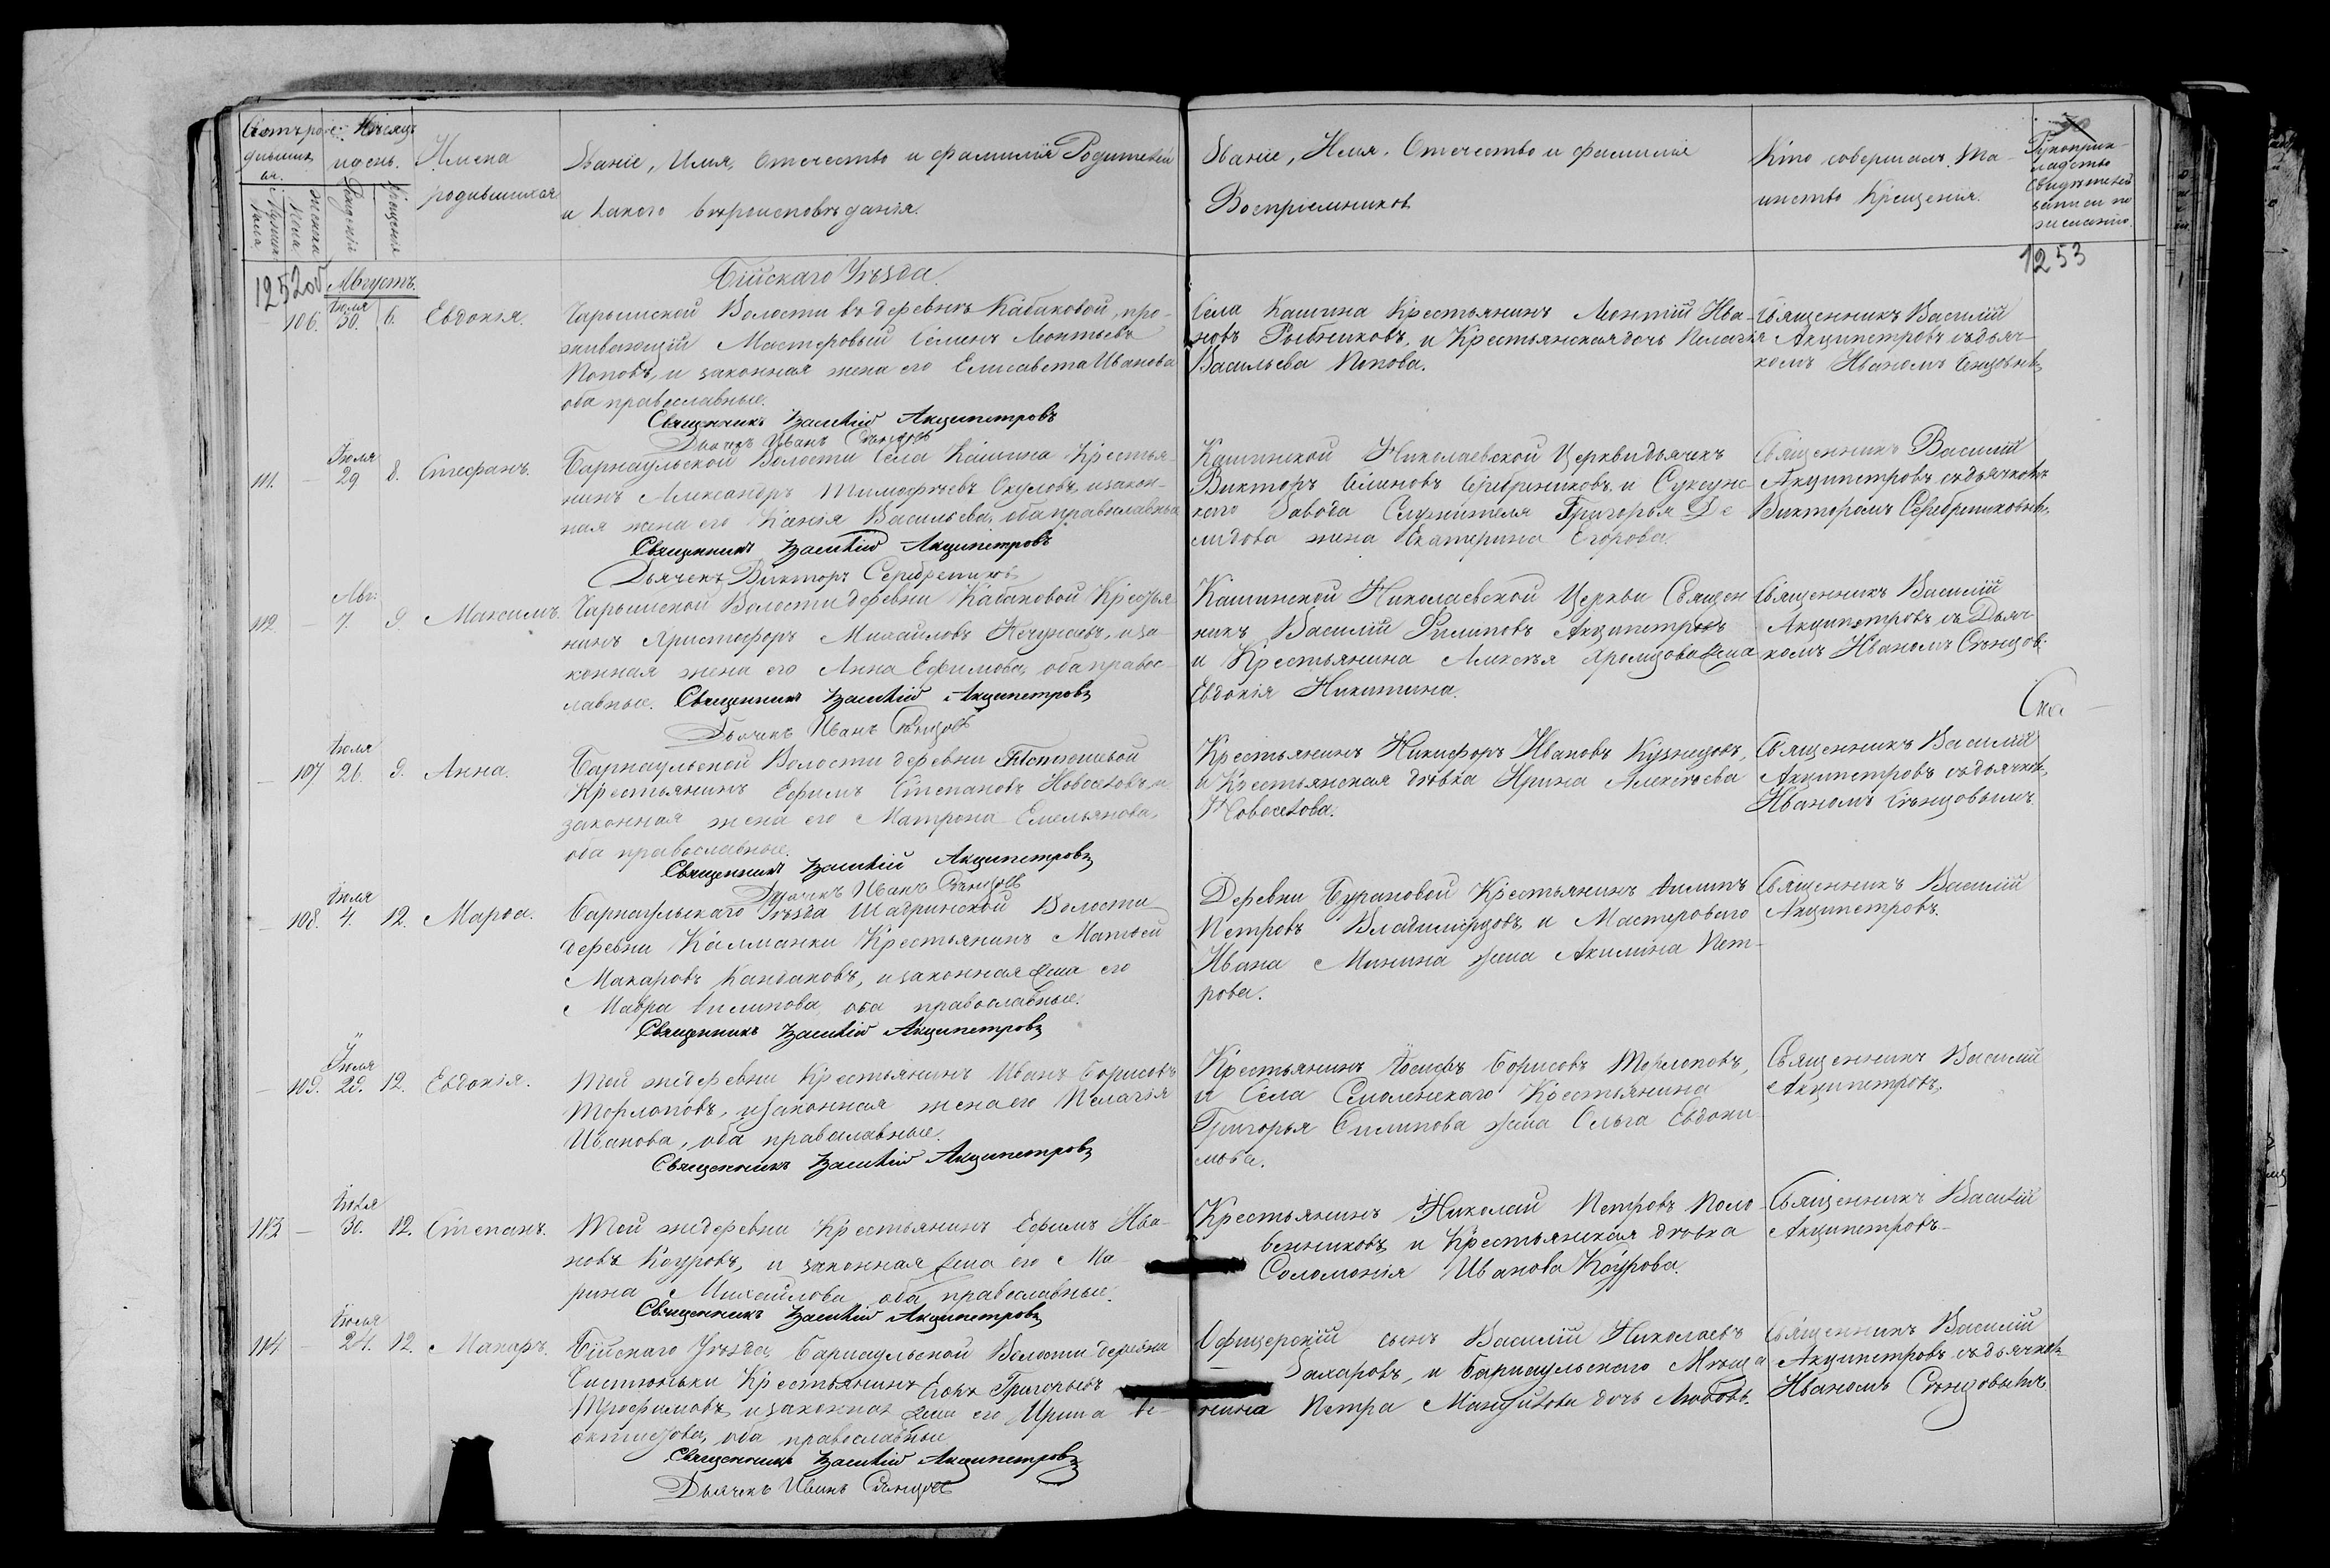 Счетъ родившихся. Мѣсяцъ и день. Имена родившихся
Мужска пола Женска пола Рожденія Крещенія
Званіе, Имя, Отечество и фамилія Родителей
и какого вѣроисповѣданія.
Званіе, Имя, Отечество и фамилія
Воспріемниковъ
Кто совершалъ Та-
инство Крещенія.
Рукоприк-
ладство
свидѣтелей
записи по
желанію.
1252об Августъ.
Бійскаго Уѣзда.
1253
106. Іюля 30. 6. Евдокія.
Чарышской Волости въ деревнѣ Кабаковой, про-
живающій Мастеровый Семенъ Леонтьевъ
Поповъ, и законная жена его Елисавета Иванова
оба православные.
Священникъ Василій Акципетровъ
Дьячекъ Иванъ Сѣнцовъ
Села Кашина Крестьянинъ Леонтій Ива-
новъ Рыбниковъ, и Крестьянская дочь Пелагія
Васильева Попова.
Священникъ Василій
Акципетровъ съ дьяч-
комъ Иваномъ Сенцовымъ
111. Іюля 29 8. Стефанъ.
Барнаульской Волости Села Кашина Крестья-
нинъ Александръ Тимофѣевъ Окуловъ, и закон-
ная жена его Ксанія Васильева, оба православные
Священникъ Василій Акципетровъ
Дьячекъ Викторъ Серебрениковъ
Кашинской Николаевской Церкви дьячекъ
Викторъ Семеновъ Серебрениковъ, и Сузунс-
каго Завода Служителя Григорья Де-
мидова жена Екатерина Егорова.
Священникъ Василій
Акципетровъ съ дьячкомъ
Викторомъ Серебрениковымъ.
112. Авг: 7. 9 Максимъ.
Чарышской Волости деревни Кабаковой Крестья-
нинъ Христофоръ Михайловъ Нечунаевъ, и за-
конная жена его Анна Ефимова, оба правос-
лавные. Священникъ Василій Акципетровъ
Дьячекъ Иванъ Сѣнцовъ
Кашинской Николаевской Церкви Священ-
никъ Василій Филиповъ Акципетровъ
и Крестьянина Алексѣя Хромцова жена
Евдокія Никитина.
Священникъ Василій
Акципетровъ съ Дьяч-
комъ Иваномъ Сѣнцов.
107 Іюля 26. 9. Анна.
Барнаульской Волости деревни
Крестьянинъ Ефимъ Степановъ Новоселовъ, и
законная жена его Матрона Емельянова,
оба православные.
Священникъ Василій Акципетровъ
Дьячекъ Иванъ Сѣнцовъ
Крестьянинъ Никифоръ Ивановъ Кузнецовъ,
и Крестьянская дѣвка Ирина Алексѣева
Новоселова.
Священникъ Василій
Акципетровъ съ дьячкомъ
Иваномъ Сѣнцовымъ.
108. Іюля 4. 12. Марѳа.
Барнаульскаго Уѣзда Шадринской Волости
деревни Калманки Крестьянинъ Матвей
Макаровъ Кандаковъ, и законная жена его
Мавра Филипова, оба православные.
Священникъ Василій Акципетровъ
Деревни Бурановой Крестьянинъ Филипъ
Петровъ Владимірцовъ, и Мастероваго
Ивана Минина жена Акилина Пет-
рова.
Священникъ Василій
Акципетровъ.
109. Іюля 28. 12. Евдокія.
Той же деревни Крестьянинъ Иванъ Борисовъ
Торлоповъ, и законная жена его Пелагія
Иванова, оба православные.
Священникъ Василій Акципетровъ
Крестьянинъ Іосифъ Борисовъ Торлоповъ,
и Села Смоленскаго Крестьянина
Григорья Филипова жена Ольга Евдоки-
мова.
Священникъ Василій
Акципетровъ,
113 Іюля 30. 12. Степанъ.
Той же деревни Крестьянинъ Ефимъ Ива-
новъ Кауровъ, и законная жена его Ма-
рина Михайлова оба православные.
Священникъ Василій Акципетровъ
Крестьянинъ Николай Петровъ Поло-
венниковъ, и Крестьянская дѣвка
Соломонія Иванова Каурова.
Священникъ Василій
Акципетровъ
114 Іюля 24. 12. Макаръ.
Бійскаго Уѣзда, Барнаульской Волости деревни
Чистюньки Крестьянинъ Егоръ Григорьевъ
Трофимовъ, и законная жена его Ирина Ѳе-
октистова, оба православные
Священникъ Василій Акципетровъ
Дьячекъ Иванъ Сѣнцовъ
Офицерскій сынъ Василій Николаевъ
Захаровъ, и Барнаульскаго Мѣща-
нина Петра дочь Любовь.
Священникъ Василій
Акципетровъ съ дьячкомъ
Иваномъ Сѣнцовымъ.